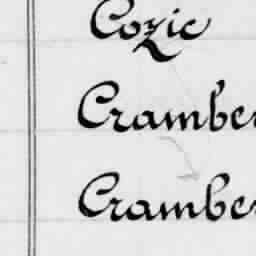 Cozic
Cramber
Cramber